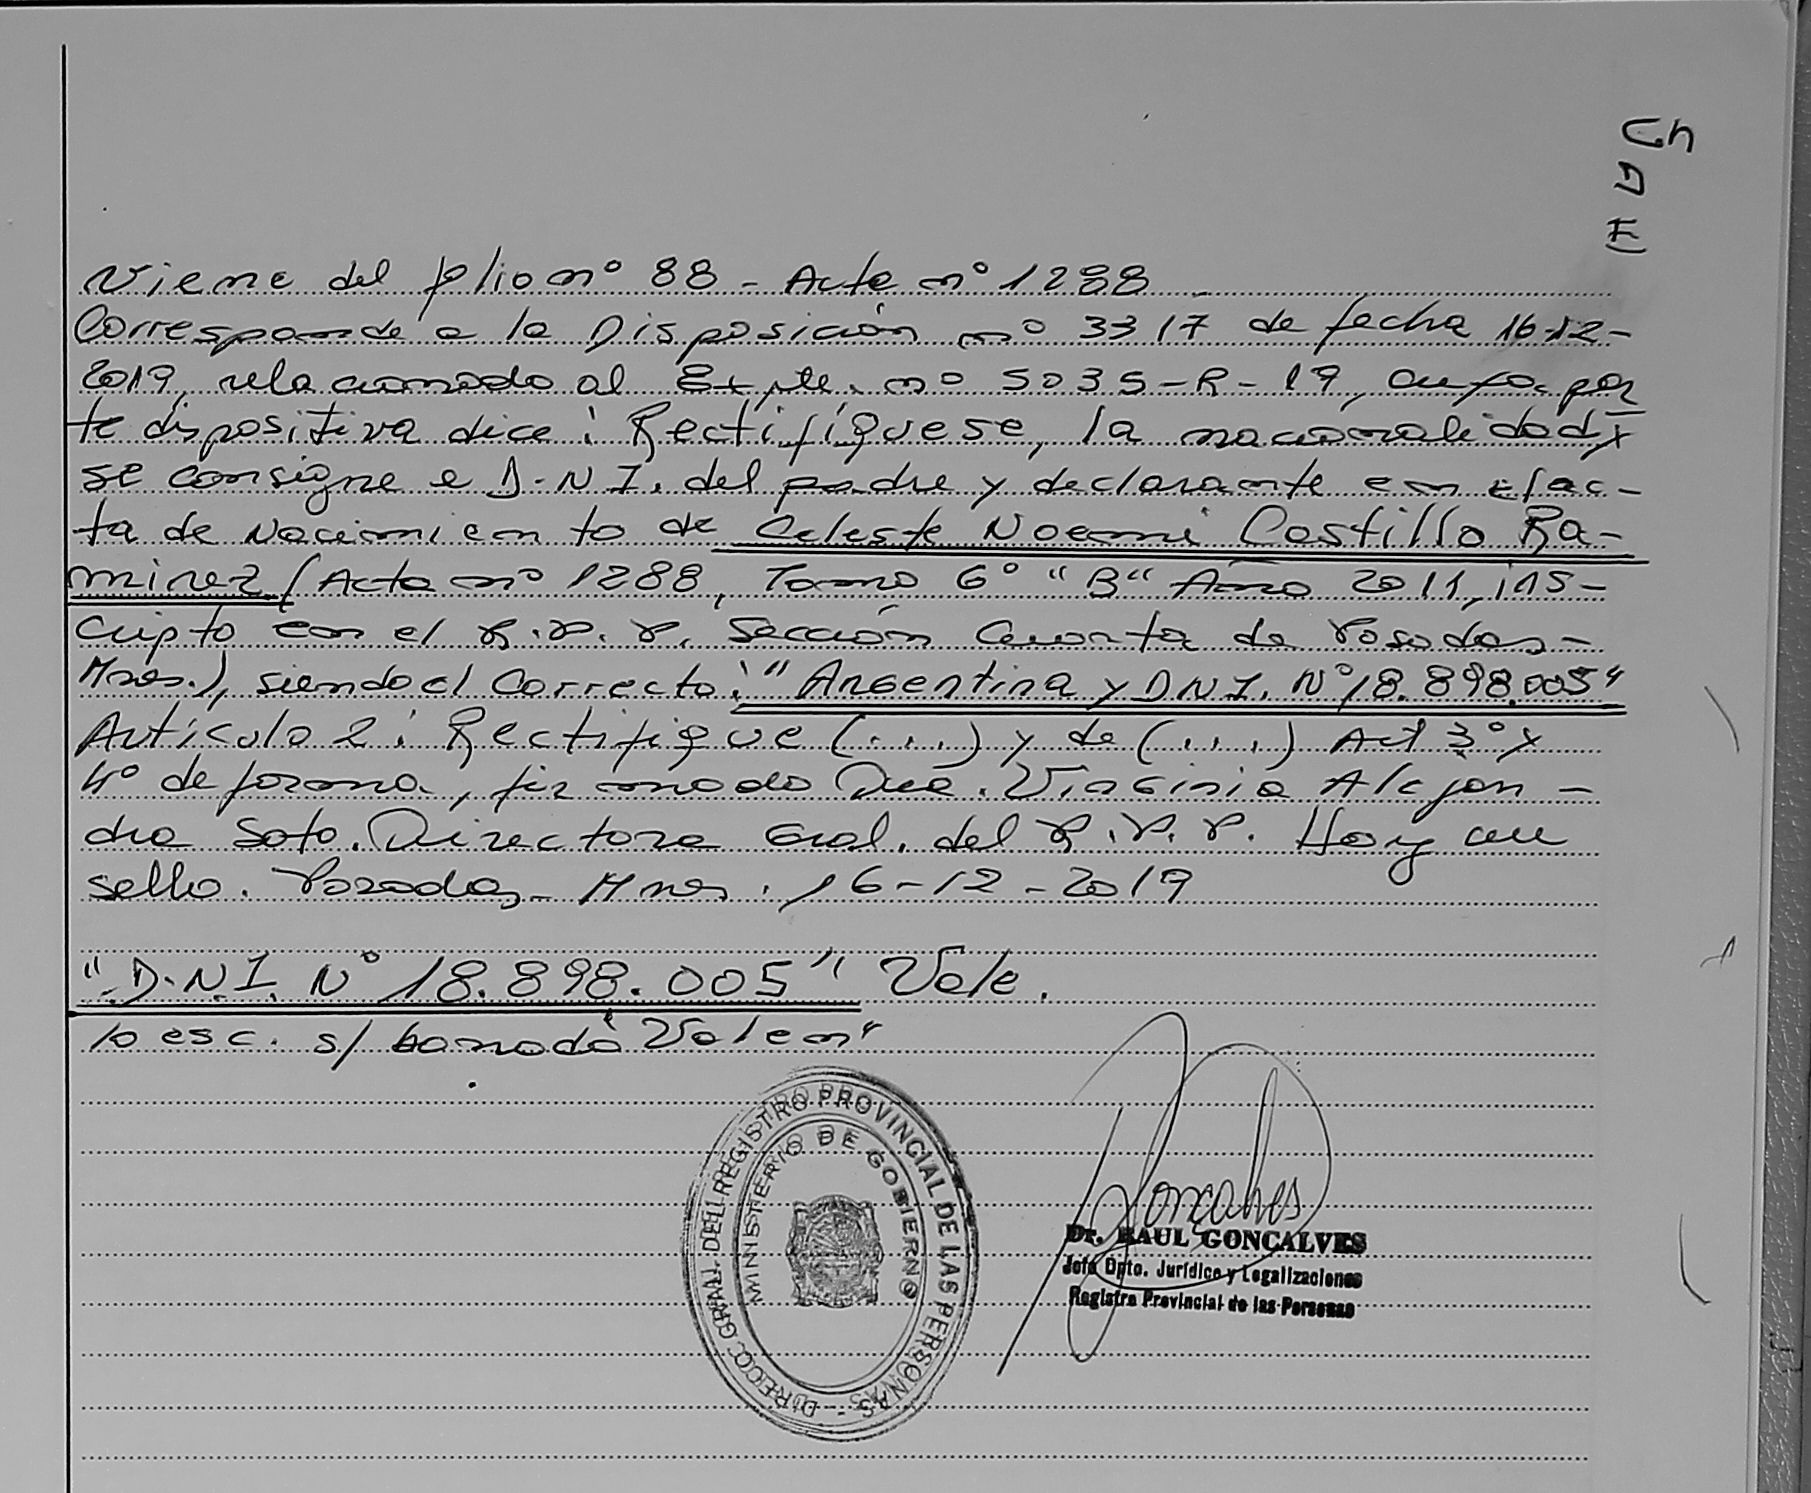 Viene del folio nº 88 - Acta nº 1288
Corresponde a la Disposición nº 3317 de fecha 16-12-
2019, relacionado al Expte. nº 5035-R-19, cuya par
te dispositiva dice: Rectifíquese, la nacionalidad y
se consigne e D.N.I. del padre y declarante en el ac-
ta de Nacimiento de Celeste Noemi Castillo Ra-
mirez (Acta nº 1288, Tomo 6º "B" Año 2011, ins-
cripto en el R.P.P. Sección Cuarta de Posadas-
Mnes.), siendo el Correcto: "Argentina y D.N.I. Nº 18.898.005"
Artículo 2: Rectifique (...) y de (...) Art 3º y
4º de forma, firmado Dra. Virginia Alejan-
dra Soto. Directora Gral. del R.P.P. Hay un
sello. Posadas- Mnes. 16-12-2019
"D.N.I. Nº 18.898.005" Vale.
lo esc. s/ borrado "Valen"
DIRECC. GRAL. DEL REGISTRO PROVINCIAL DE LAS PERSONAS
MINISTERIO DE GOBIERNO
Goncalves
Dr. RAUL GONCALVES
Jefe Dpto. Jurídico y Legalizaciones
Registro Provincial de las Personas